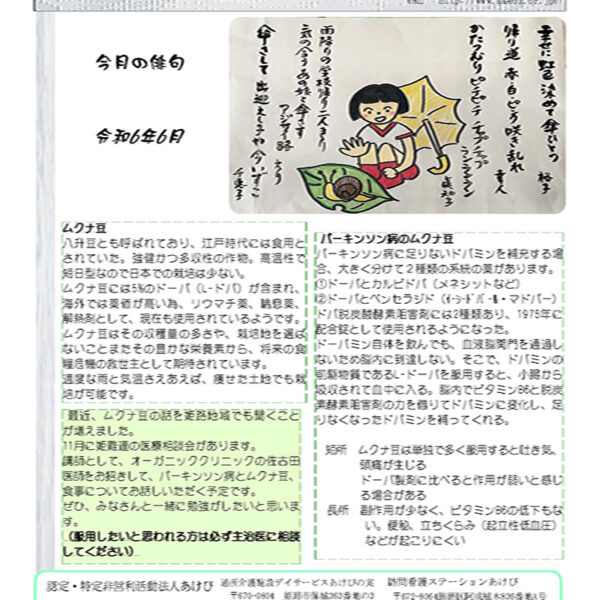 今月の俳句
令和6年6月
幸せに 虹色 染めて 傘ひとつ
裕子
帰り道 赤・白・ピンク 咲き乱れ
かたつむり ピチピチ チャプチャプ ランランラン
雨降りの 学校帰り 二人より
アジサイ路
傘さして 出迎えし
ムクナ豆
八升豆とも呼ばれており、江戸時代には食用と
されていた。強健かつ多収性の作物。高温性で
短日型なので日本での栽培は少ない。
ムクナ豆には5%のドーパ（L-ドパ）が含まれ、
海外では薬価が高い為、リウマチ薬、鎮息薬、
解熱剤として、現在も使用されているようです。
ムクナ豆はその収穫量の多さや、栽培地を選ば
ないことまたその豊かな栄養素から、将来の食
糧危機の救世主として期待されています。
適度な雨と気温さえあえば、痩せた土地でも栽
培が可能です。
最近、ムクナ豆の話を姫路地域でも聞くこと
が増えました。
11月に姫難連の医療相談会があります。
講師として、オーガニッククリニックの佐古田
医師をお招きして、パーキンソン病とムクナ豆、
食事についてお話しいただく予定です。
ぜひ、みなさんと一緒に勉強がしたいと思いま
す。
（服用したいと思われる方は必ず主治医に相談
してください）
パーキンソン病のムクナ豆
パーキンソン病に足りないドパミンを補充する場
合、大きく分けて２種類の系統の薬があります。
①ドーパとカルビドパ（メネシットなど）
②ドーパとベンセラジド（イーシー・ドパール・マドパー）
ドパ脱炭酸酵素阻害剤には2種類あり、1975年に
配合錠として使用されるようになった。
ドーパミン自体を飲んでも、血液脳関門を通過し
ないため脳内に到達しない。そこで、ドパミンの
前駆物質であるL-ドーパを服用すると、小腸から
吸収されて血中に入る。脳内でビタミンB6と脱炭
素酵素阻害剤の力を借りてドパミンに変化し、足
りなくなったドパミンを補ってくれる。
短所　ムクナ豆は単独で多く服用すると吐き気、
頭痛が生じる
ドーパ製剤に比べると作用が弱いと感じ
る場合がある
長所　副作用が少なく、ビタミンB6の低下もな
い。便秘、立ちくらみ（起立性低血圧）
などが起こりにくい
認定・特定非営利活動法人あけび
通所介護施設デイサービスあけびの実
〒670-0804　姫路市保城363番地の3
訪問看護ステーションあけび